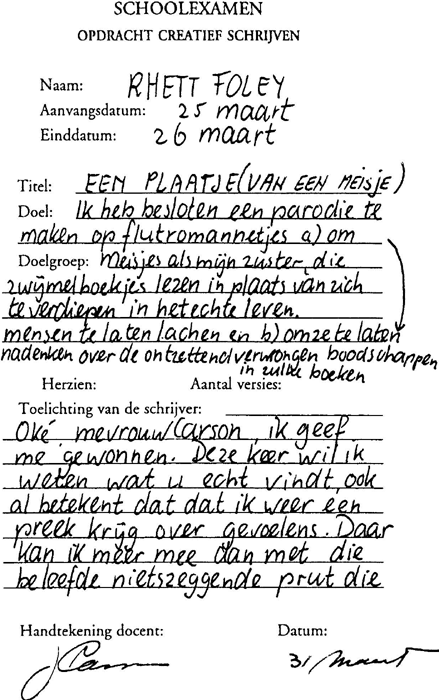 SCHOOLEXAMEN
OPDRACHT CREATIEF SCHRIJVEN
Naam: RHETT FOLEY
Aanvangsdatum: 25 maart
Einddatum: 26 maart
Titel: EEN PLAATJE (VAN EEN MEISJE)
Doel: Ik heb besloten een parodie te
maken op flutromannetjes a) om
Doelgroep: Meisjes als mijn zuster, die
zwijmelboekjes lezen in plaats van zich
te verdiepen in het echte leven.
mensen te laten lachen en b) om ze te laten
nadenken over de ontzettend verwrongen boodschappen
in zulke boeken
Herzien: Aantal versies:
Toelichting van de schrijver:
Oké mevrouw Carson, ik geef
me gewonnen. Deze keer wil ik
weten wat u echt vindt, ook
al betekent dat dat ik weer een
preek krijg over gevoelens. Daar
kan ik meer mee dan met die
beleefde nietszeggende prut die
Handtekening docent: Datum:
JCarson 31 maart